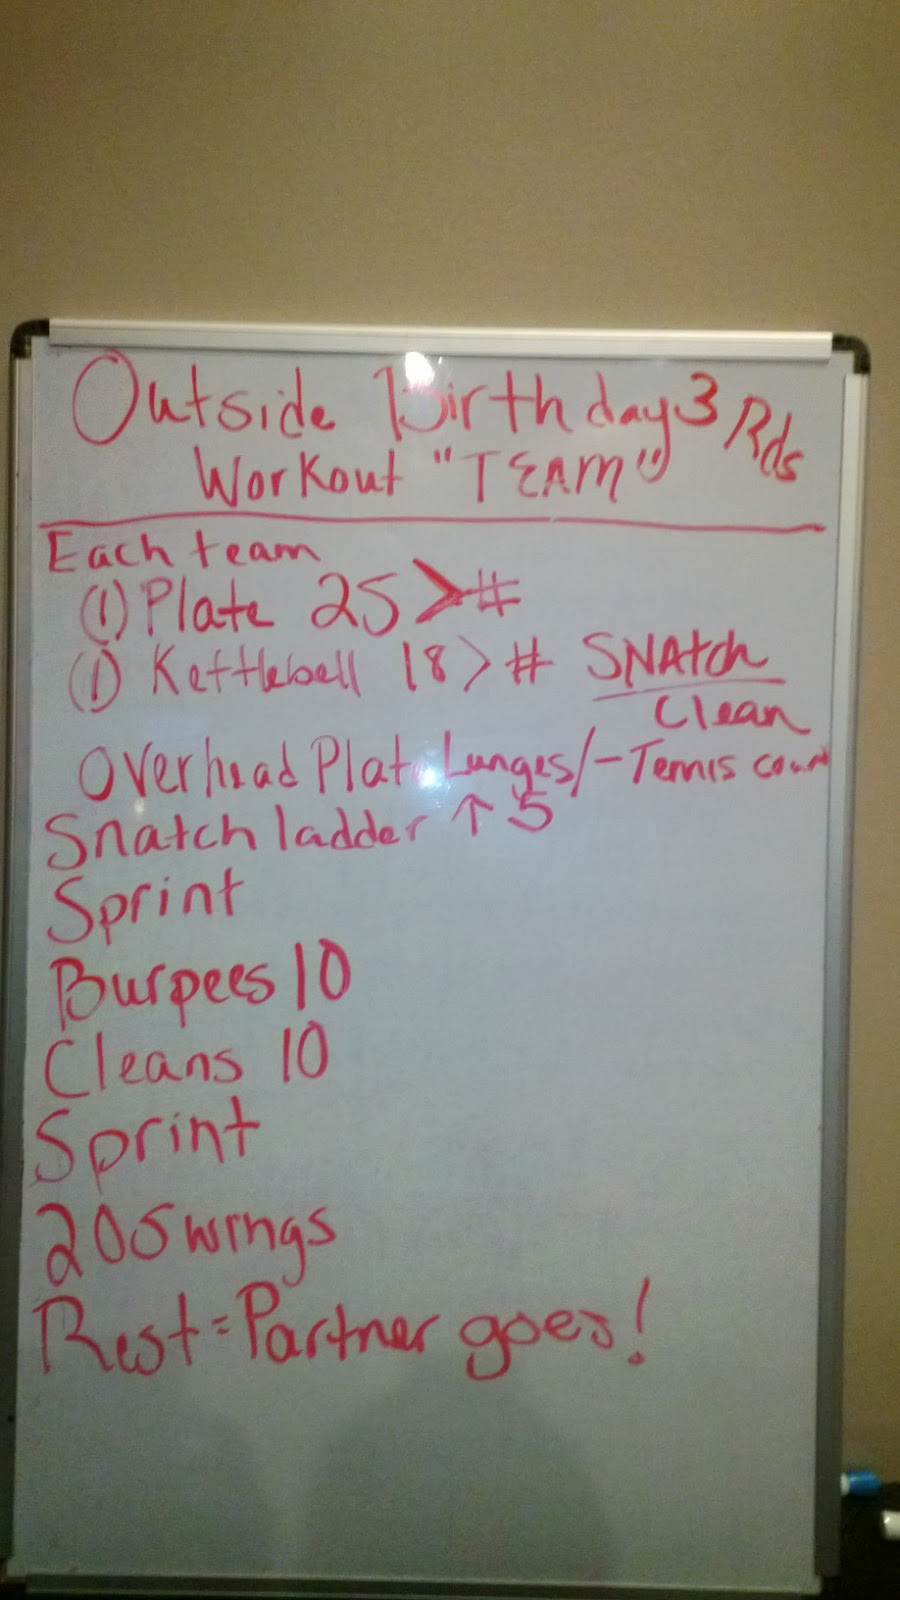 Outside Birthday 3 Rds
Workout "TEAM"
Each team
(1) Plate 25 > #
(1) Kettlebell 18 > # SNAtch
Clean
Overhead Plate Lunges/-Tennis court
Snatch ladder ↑ 5
Sprint
Burpees 10
Cleans 10
Sprint
20 Swings
Rest = Partner goes!